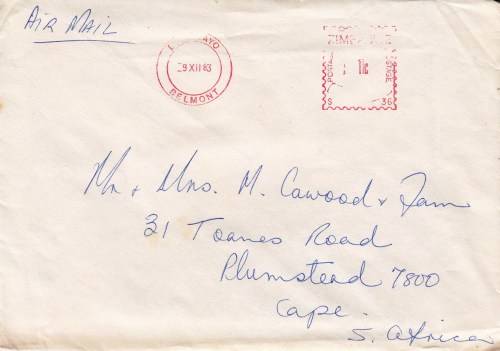 AIR MAIL
9 XII 83
BELMONT
11c
POSTAGE
S 36
Mr + Mrs. M. Cawood + Fam
31 Toanes Road
Plumstead 7800
Cape.
S. Africa